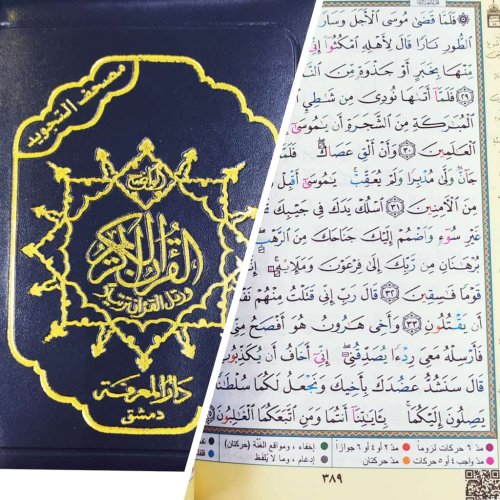 مصحف التجويد
الواضح
القرآن الكريم
ورتل القرآن ترتيلا
دار المعرفة
دمشق
فَلَمَّا قَضَىٰ مُوسَى ٱلْأَجَلَ وَسَارَ
ٱلطُّورِ نَارًا قَالَ لِأَهْلِهِ ٱمْكُثُوٓا۟ إِنِّىٓ
مِّنْهَا بِخَبَرٍ أَوْ جَذْوَةٍ مِّنَ
٢٩ فَلَمَّآ أَتَىٰهَا نُودِىَ مِن شَٰطِئِ
ٱلْمُبَٰرَكَةِ مِنَ ٱلشَّجَرَةِ أَن يَٰمُوسَىٰٓ
ٱلْعَٰلَمِينَ ٣٠ وَأَنْ أَلْقِ عَصَاكَ فَلَمَّا
جَآنٌّ وَلَّىٰ مُدْبِرًا وَلَمْ يُعَقِّبْ يَٰمُوسَىٰٓ أَقْبِلْ
مِنَ ٱلْـَٔامِنِينَ ٣١ ٱسْلُكْ يَدَكَ فِى جَيْبِكَ
غَيْرِ سُوٓءٍ وَٱضْمُمْ إِلَيْكَ جَنَاحَكَ مِنَ ٱلرَّهْبِ
بُرْهَٰنَانِ مِن رَّبِّكَ إِلَىٰ فِرْعَوْنَ وَمَلَإِي۟هِۦٓ
قَوْمًا فَٰسِقِينَ ٣٢ قَالَ رَبِّ إِنِّى قَتَلْتُ مِنْهُمْ نَفْسًا
أَن يَقْتُلُونِ ٣٣ وَأَخِى هَٰرُونُ هُوَ أَفْصَحُ مِنِّى
فَأَرْسِلْهُ مَعِىَ رِدْءًا يُصَدِّقُنِىٓ إِنِّىٓ أَخَافُ أَن يُكَذِّبُونِ
قَالَ سَنَشُدُّ عَضُدَكَ بِأَخِيكَ وَنَجْعَلُ لَكُمَا سُلْطَٰنًا
يَصِلُونَ إِلَيْكُمَا بِـَٔايَٰتِنَآ أَنتُمَا وَمَنِ ٱتَّبَعَكُمَا ٱلْغَٰلِبُونَ
مدّ ٦ حركات لزوماً مدّ ٢ أو ٤ أو ٦ جوازاً إخفاء، ومواقع الغنّة (حركتان)
مدّ واجب ٤ أو ٥ حركات مدّ حركتان إدغام، وما لا يُلفظ
٣٨٩